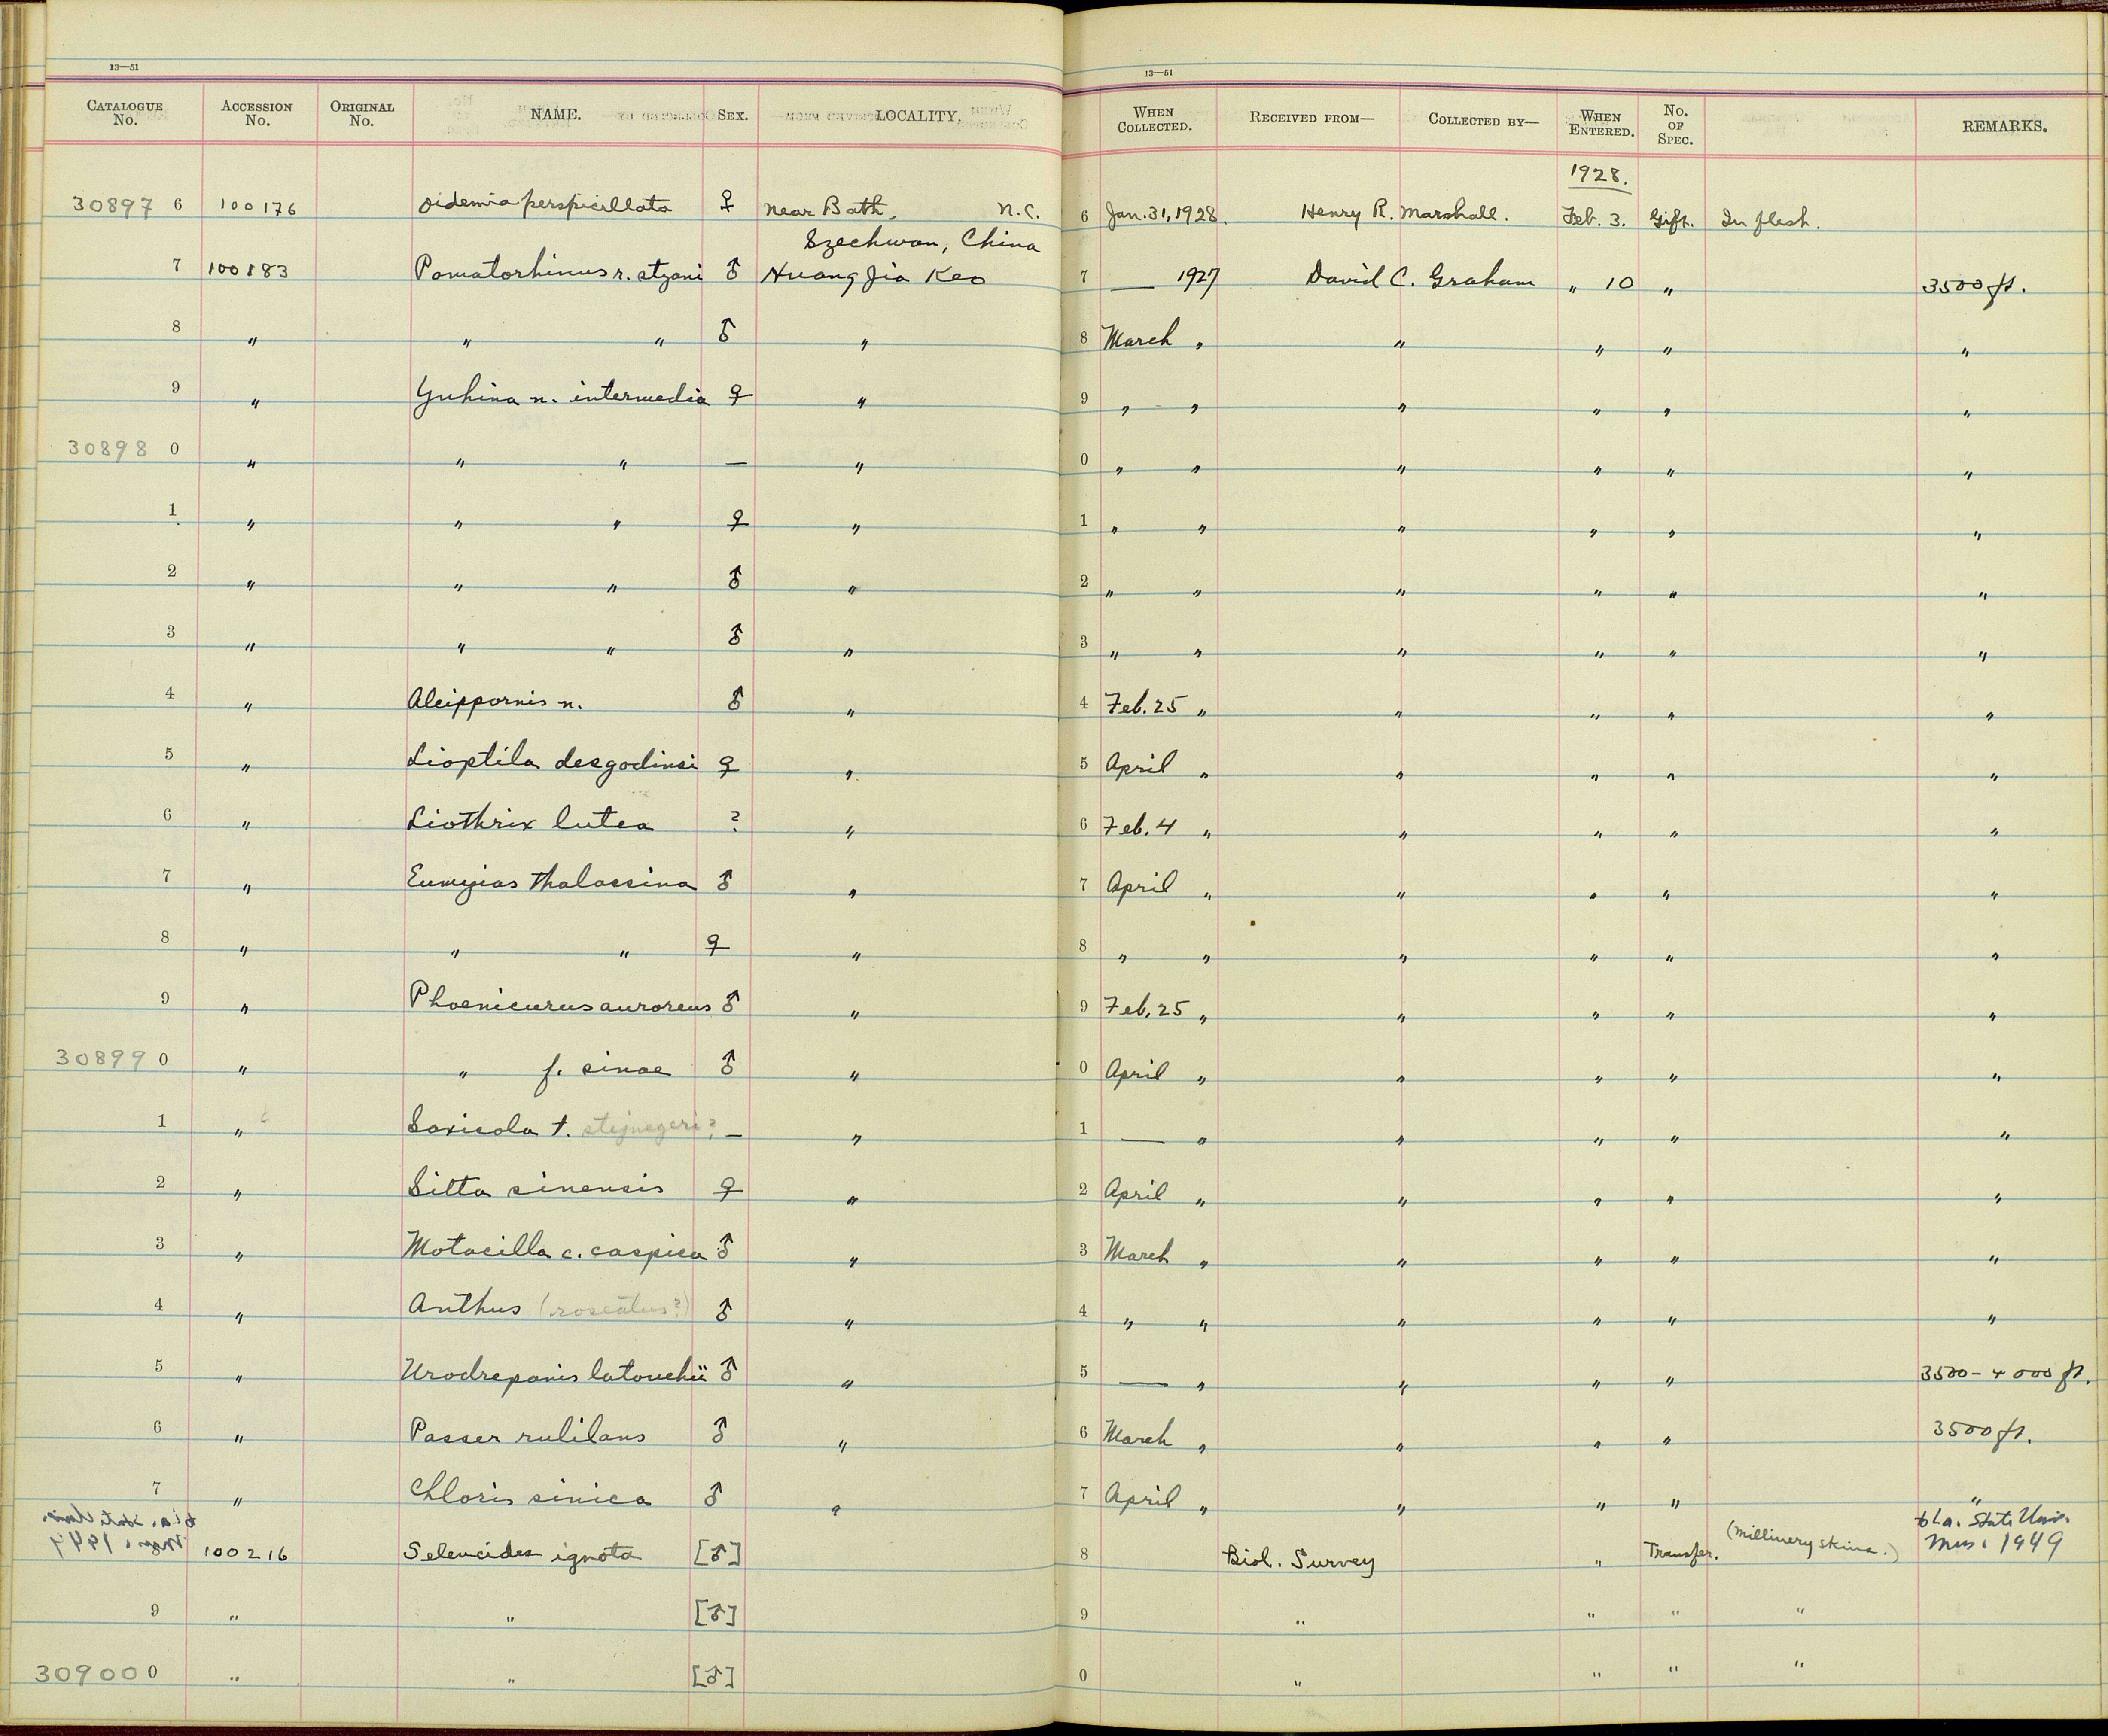 13—51 13—51
CATALOGUE No. ACCESSION No. ORIGINAL No. NAME. SEX. LOCALITY. WHEN COLLECTED. RECEIVED FROM— COLLECTED BY— WHEN ENTERED. No. OF SPEC. REMARKS.
1928.
30897 6 100176 Oidemia perspicillata ♀ near Bath, N.C. 6 Jan. 31, 1928. Henry R. Marshall. Feb. 3. Gift. In flesh.
Szechwan, China
7 100183 Pomatorhinus r. styani ♂ Huang Jia Keo 7 — 1927 David C. Graham " 10 " 3500 ft.
8 " " " ♂ " 8 March " " " " "
9 " Yuhina n. intermedia ♀ " 9 " " " " " "
30898 0 " " " — " 0 " " " " " "
1 " " " ♀ " 1 " " " " " "
2 " " " ♂ " 2 " " " " " "
3 " " " ♂ " 3 " " " " " "
4 " Alcippornis n. ♂ " 4 Feb. 25 " " " " "
5 " Lioptila desgodinsi ♀ " 5 April " " " " "
6 " Liothrix lutea ? " 6 Feb. 4 " " " " "
7 " Eumyias thalassina ♂ " 7 April " " " " "
8 " " " ♀ " 8 " " " " " "
9 " Phoenicurus auroreus ♂ " 9 Feb. 25 " " " " "
30899 0 " " f. sinae ♂ " 0 April " " " " "
1 " Saxicola t. stejnegeri? — " 1 — " " " " "
2 " Sitta sinensis ♀ " 2 April " " " " "
3 " Motacilla c. caspica ♂ " 3 March " " " " "
4 " Anthus (roseatus?) ♂ " 4 " " " " " "
5 " Urodrepanis latouchii ♂ " 5 — " " " " 3500-4000 ft.
6 " Passer rutilans ♂ " 6 March " " " " 3500 ft.
7 " Chloris sinica ♂ " 7 April " " " " "
to La. State Univ.
Mus. 1949
100216 Seleucides ignota [♂] 8 Biol. Survey " Transfer. (Millinery skins.)
9 " " [♂] 9 " " " "
30900 0 " " [♂] 0 " " " "